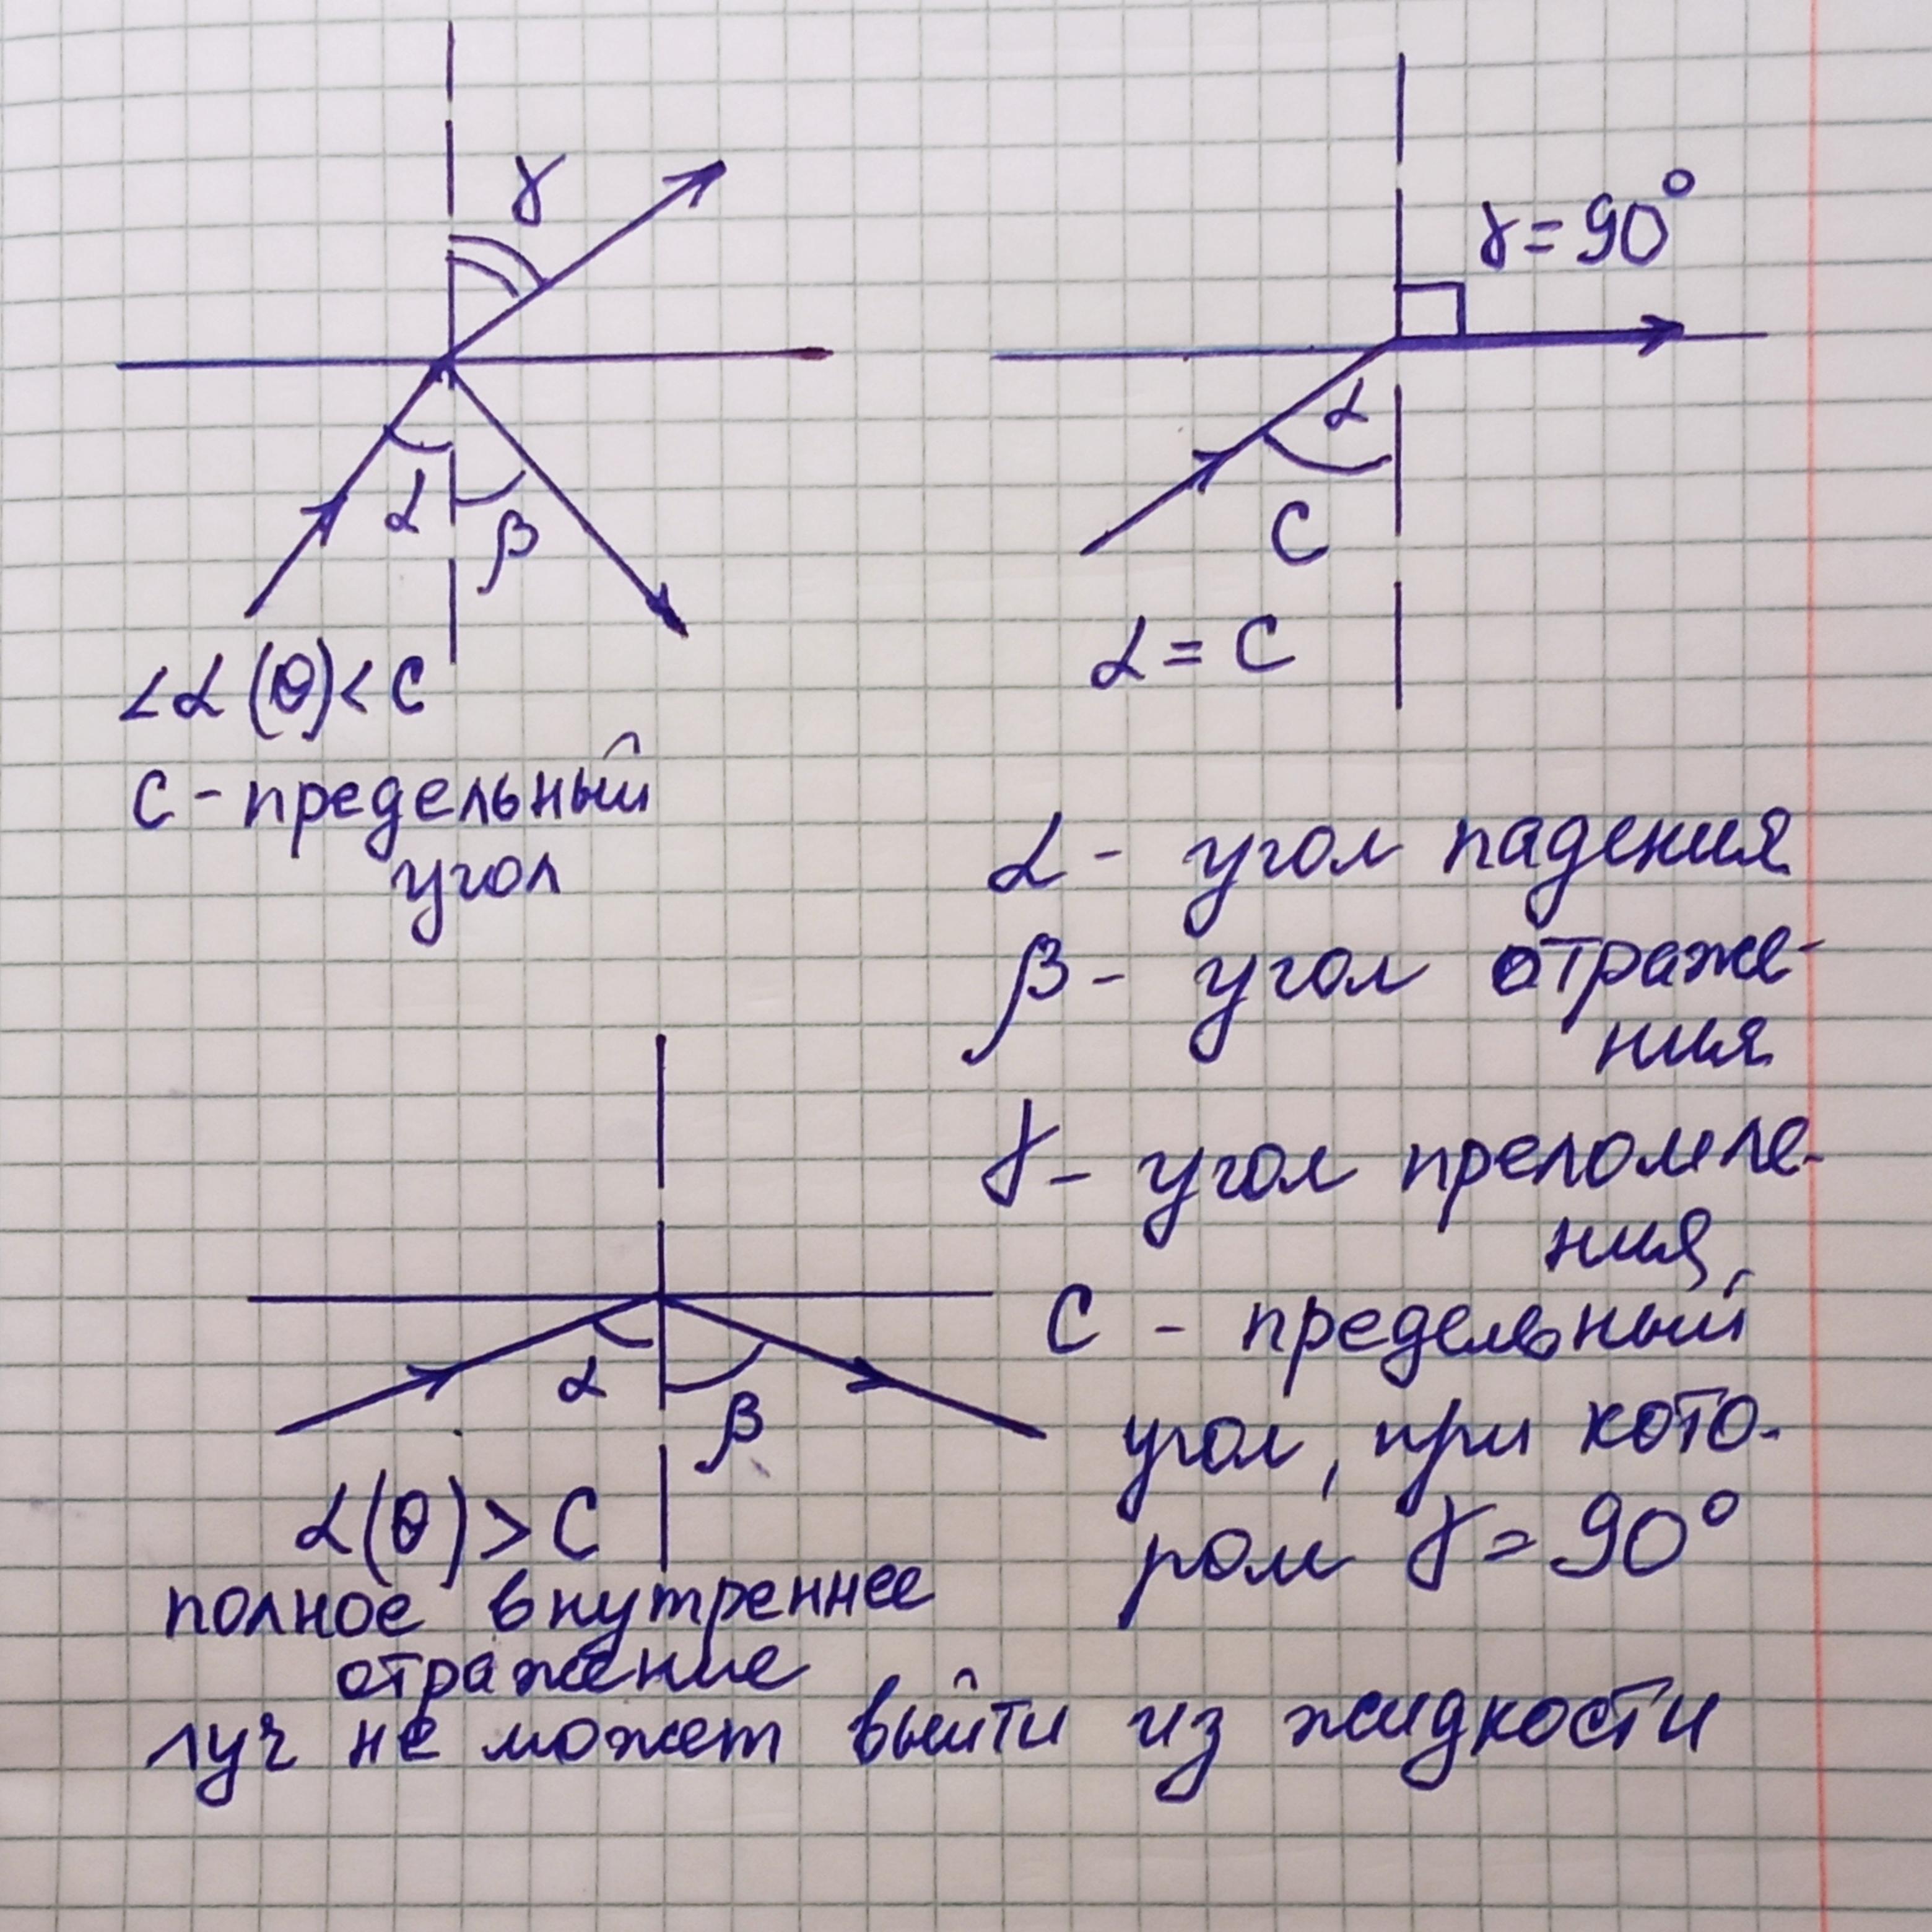 γ
α
β
∠α(θ)<С
С - предельный
угол
γ=90°
α
С
α=С
α - угол падения
β - угол отраже-
ния
γ - угол преломле-
ния,
С - предельный
угол, при кото-
ром γ=90°
α
β
α(θ)>С
полное внутреннее
отражение
луч не может выйти из жидкости